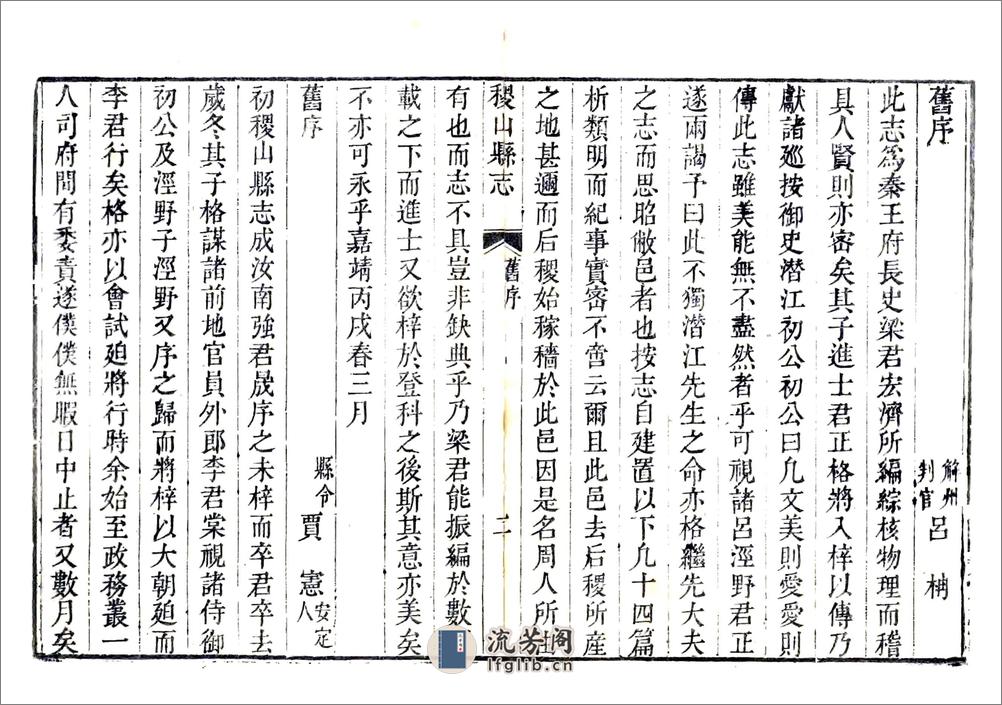 舊序
解州判官呂柟
此志爲秦王府長史梁君宏濟所編綜核物理而稽
具人賢則亦審矣其子進士君正格將入梓以傳乃
獻諸廵按御史潛江初公初公曰凡文美則愛愛則
傳此志雖美能無不盡然者乎可視諸呂涇野君正
遂兩謁予曰此不獨潛江先生之命亦格繼先大夫
之志而思昭敝邑者也按志自建置以下凡十四篇
析類明而紀事實密不啻云爾且此邑去后稷所產
之地甚邇而后稷始稼穡於此邑因是名周人所
稷山縣志
舊序
二
有也而志不具豈非缺典乎乃梁君能振編於數
載之下而進士又欲梓於登科之後斯其意亦美矣
不亦可永乎嘉靖丙戌春三月
舊序
縣令賈憲安定人
初稷山縣志成汝南強君晟序之未梓而卒君卒去
歲冬其子格謀諸前地官員外郎李君棠視諸侍御
初公及涇野子涇野又序之歸而將梓以大朝廹而
李君行矣格亦以會試廹將行時余始至政務叢一
人司府間有委責遂僕僕無暇日中止者又數月矣
流芳阁
lfglib.cn